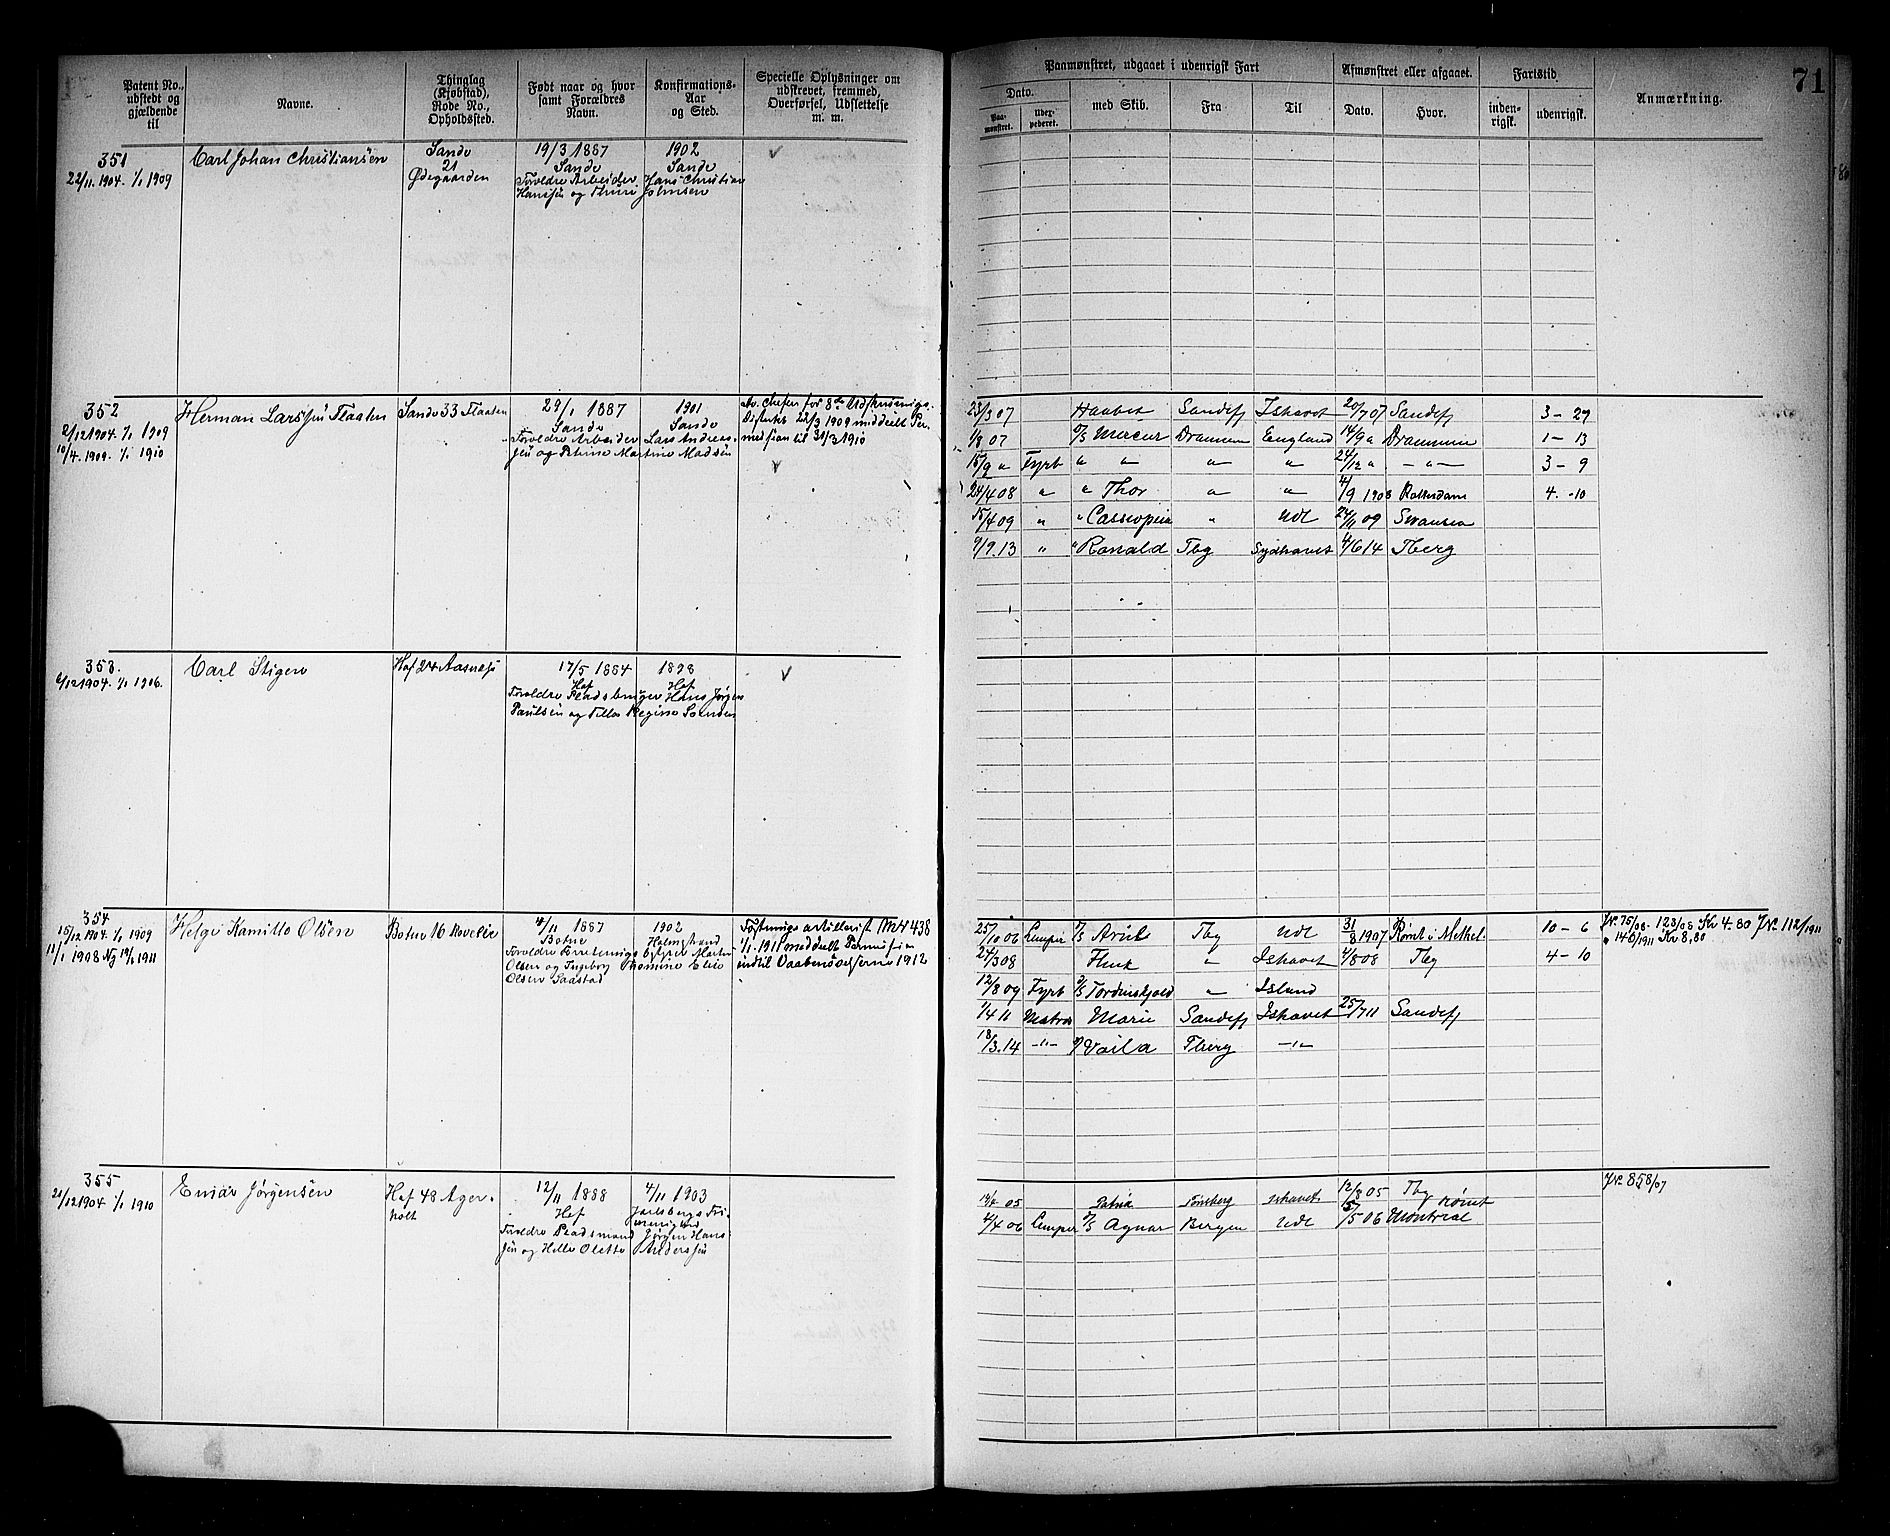 71
Patent No.,
udstedt og
gjældende
til
Navne.
Thinglag
(Kjøbstad),
Rode No.,
Opholdssted.
Født naar og hvor
samt Forældres
Navn.
Konfirmations-
Aar
og Sted.
Specielle Oplysninger om
udskrevet, fremmed,
Overførsel, Udslettelse
m. m.
Paamønstret, udgaaet i udenrigsk Fart
Dato.
Paa-
mønstret.
Udex-
pederet.
med Skib.
Fra
Til
Afmønstret eller afgaaet.
Dato.
Hvor.
Fartstid.
inden-
rigsk.
udenrigsk.
Anmærkning.
351
22/11.1904. 1/1 1909
Carl Johan Christiansen
Sande
21
Ødegaarden
19/3 1887
Sande
Forældre Arbeider Hans Christian
Hanssen og Thrine Johnsen
1902
Sande
352
2/12 1904. 1/1 1909
10/4. 1909. 1/1 1910
Herman Larssen Flaaten
Sande 33 Flaaten
29/1 1887
Sande
Forældre Arbeider Lars Andreas-
sen og Petrine Martine Madsen
1901
Sande
Av. Chefen for 8de Udskrivnings-
Distrikt 22/3 1909 meddelt Per-
mission til 31/3 1910
23/3 07 Haabet Sandefj Ishavet 20/7 07 Sandefj 3 - 29
1/8 07 D/S Mercur Drammen England 14/9 " Drammen 1 - 13
15/9 " Fyrb " " " " 24/12 " - " - 3 - 9
24/4 08 " " Thor " " 4/9 1908 Rotterdam 4. - 10
15/4 09 " " Cassiopeia " Udl 24/11 09 Swansea
9/9.13 " " Ronald Tbg Sydhavet 4/6 14 Tberg
353.
6/12 1904. 1/1 1906.
Carl Stigero
Hof 24 Aasnæs
17/5 1884
Hof
Forældre Pladsbruger Hans Jørgen
Paulsen og Tilla Regine
1898
Hof
354
15/12 1904. 1/1 1909
11/1 1908 Ng 19/1 1911
Helge Kamillo Olsen
Botne 16 Kovelie
4/11 1887
Botne
Forældre Forretningsbestyrer Martin
Olsen og Ingeborg Thomine Elie
Olsen Saastad
1902
Holmestrand
Festningsartillerist Mnr 438
1/1. 1911 meddelt Permission
indtil Vaabenøvelserne 1912
25/10 06 Lemper D/S Arild Tbg Udl 31/8 1907 Rømt i Methel. 10 - 6
J.No 75/08. 123/08 Kr 4.80 J.No 112/1911
" 140/1911 Kr 8,80
24/3 08 Flink " Ishavet 4/8 08 Tbg 4 - 10
12/8 09 Fyrb D/S Tordenskjold " Island
1/4 11 Matros Marie Sandefj Ishavet 25/7 11 Sandefj
18/3.14 -"- D/ Vaila Tberg -"-
355
21/12 1904 1/1 1910
Einar Jørgensen
Hof 48 Ager-
holt
12/11 1888
Hof
Forældre Pladsmand Jørgen Hans-
sen og Helle Olette Anderssen
4/11 1903
Jarlsbergs Fri-
menighed
14/2 05 Patria Tønsberg Ishavet 12/8 05 Tbg
4/4 06 Lemper D/S Agnar Bergen Udl 5/5 06 Rømt Montreal
J.No 858/07